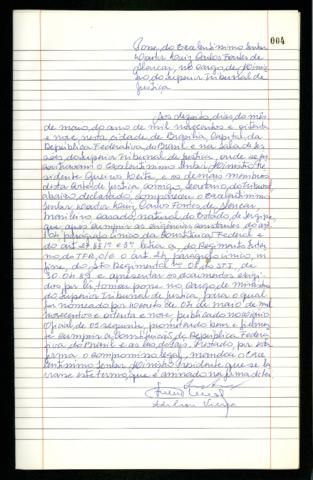 004
Posse do Excelentíssimo Senhor
Doutor Luiz Carlos Fontes de
Alencar, no cargo de Minis-
tro do Superior Tribunal de
Justiça
Aos dezoito dias do mês
de maio do ano de mil novecentos e oitenta
e nove, nesta cidade de Brasília, Capital da
República Federativa do Brasil e na Sala de Ses-
sões do Superior Tribunal de Justiça, onde se en-
contravam o Excelentíssimo Senhor Ministro Pre-
sidente Gueiros Leite, e os demais membros
desta Corte de Justiça comigo, Secretário do Tribunal,
abaixo declarado, compareceu o Excelentíssimo
Senhor Doutor Luiz Carlos Fontes de Alencar,
brasileiro, casado, natural do Estado de Sergipe,
que após cumprir as exigências constantes do art.
104 parágrafo único da Constituição Federal e
do art. 27 §§ 1º e 5º letra a, do Regimento Inter-
no do TFR, c/c o art. parágrafo único, in
fine, do Ato Regimental nº 01 do STJ, de
e apresentar os documentos exigi-
dos por lei, tomar posse no cargo de Ministro
do Superior Tribunal de Justiça, para o qual
foi nomeado por Decreto de 04 de maio de mil
novecentos e oitenta e nove, publicado no Diário
Oficial de 05 seguinte, prometendo bem e fielmen-
te cumprir a Constituição da República Federa-
tiva do Brasil e as leis do País. Prestado, por esta
forma o compromisso legal, mandou o Exce-
lentíssimo Senhor Ministro Presidente que se la-
vrasse este termo, que é assinado na forma da lei